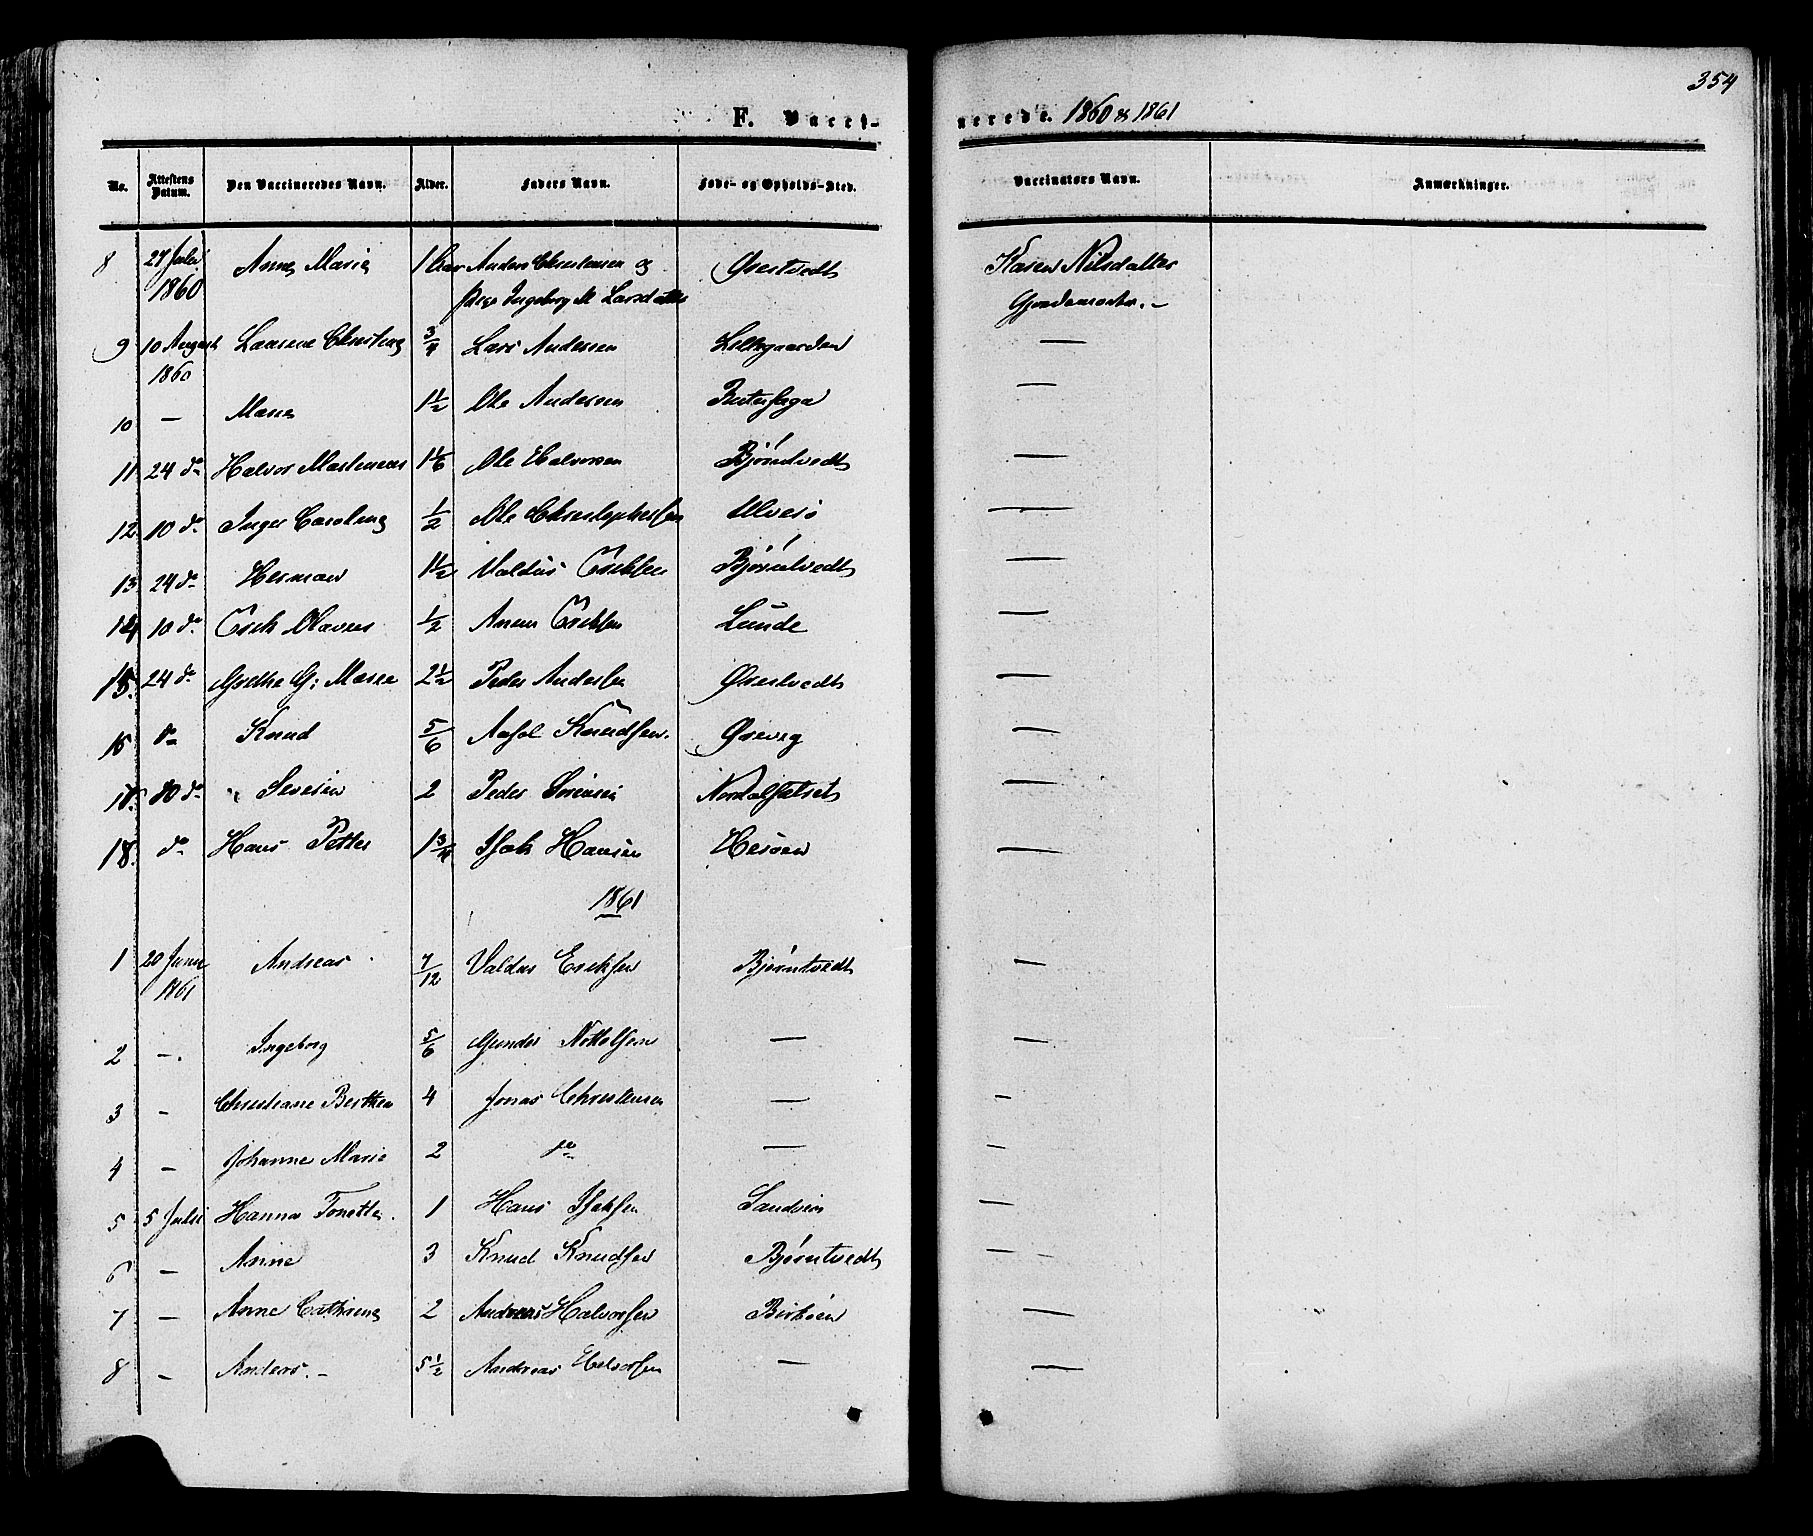 354
F. Vacci- nerede. 1860 & 1861
No. Attestens Datum. Den Vaccineredes Navn. Alder. Faders Navn. Føde- og Opholds-Sted. Vaccinators Navn. Anmærkninger.
8 27 Juli 1860 Anne Marie 1 Aar Anders Christensen og Ørstvedt Karen Nilsdatter
Pige Ingeborg M Larsdatter Gjordemoder. -
9 10 August 1860 Laurene Christine 3/4 Lars Andersen Lillegaarden —
10 — Maren 1 1/2 Ole Andersen —
11 24 do Halvor Martinius 1 1/6 Ole Halvorsen Bjørntvedt —
12 10 do Inger Caroline 1/2 Ole Christophersen —
13 24 do Herman 1 1/2 Valdus Eriksen Bjørntvedt —
14 10 do Erik Olavus 1/2 Eriksen Lunde —
15. 24 do Grethe G: Marie 2 1/2 Peder Andersen Ørstvedt —
16 do Knud 5/6 Knudsen. —
17. 30 do Severin 2 Peder Sørensen —
18. do Hans Petter 1 3/4 Isak Hansen Herøen —
1861
1 20 Juni 1861 Andreas 7/12 Valdus Eriksen Bjørntvedt —
2 -. Ingeborg 5/6 Gunder Nottolfsen — —
3 - Christiane Berthea 4 Jonas Christensen — —
4 - Johanne Marie 2 do — —
5 5 Juli Hanna Tonette. 1 Hans Isaksen Sandøen —
6 — Anne 3 Knud Knudsen Bjørntvedt —
7 — Anne Cathrine 2 Andreas Halvorsen Birkøen —
8 - Anders. - 5 1/2 Andreas Halvorsen — —